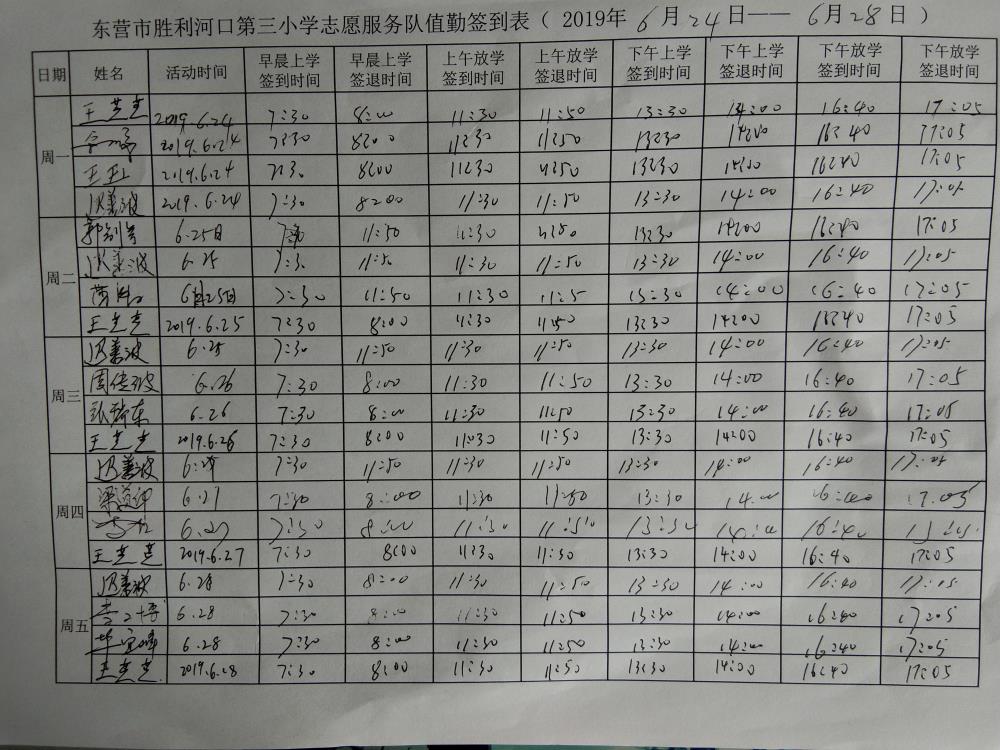 东营市胜利河口第三小学志愿服务队值勤签到表（ 2019年 6月24日—— 6月28日 ）
日期 姓名 活动时间 早晨上学签到时间 早晨上学签退时间 上午放学签到时间 上午放学签退时间 下午上学签到时间 下午上学签退时间 下午放学签到时间 下午放学签退时间
周一
2019.6.24 7:30 8:00 11:30 11:50 13:30 14:00 16:40 17:05
2019.6.24 7:30 8:00 11:30 11:50 13:30 14:00 16:40 17:05
2019.6.24 7:30 8:00 11:30 11:50 13:30 14:00 16:40 17:05
2019.6.24 7:30 8:00 11:30 11:50 13:30 14:00 16:40 17:05
周二
6.25日 11:50 11:30 11:50 13:30 14:00 16:40 17:05
6.25 7:3 11:50 11:30 11:50 13:30 14:00 16:40 17:05
6月25日 7:30 11:50 11:30 11:5 13:30 14:00 16:40 17:05
2019.6.25 7:30 8:00 11:30 11:50 13:30 14:00 16:40 17:05
周三
7:30 11:50 11:30 11:50 13:30 14:00 16:40 17:05
周传波 6.26 7:30 8:00 11:30 11:50 13:30 14:00 16:40 17:05
6.26 7:30 8:00 11:30 11:50 13:30 14:00 16:40 17:05
2019.6.26 7:30 8:00 11:30 11:50 13:30 14:00 16:40 17:05
周四
7:30 11:50 11:30 11:50 13:30 14:00 16:40 17:05
6.27 7:30 8:00 11:30 11:50 13:30 14.00 16:40 17.05
6.27 7:30 8:00 11:30 11:50 13:30 16:40
2019.6.27 7:30 8:00 11:30 11:30 13:30 14:00 16:40 17:05
周五
6.28 7:30 8:00 11:30 11:50 13:30 14:00 16:40 17:05
6.28 7:30 8:00 11:30 11:50 13:30 14:00 16:40 17:05
6.28 7:30 8:00 11:30 11:50 13:30 14:00 16:40 17:05
2019.6.28 7:30 8:00 11:30 11:50 13:30 14:00 16:40 17:05